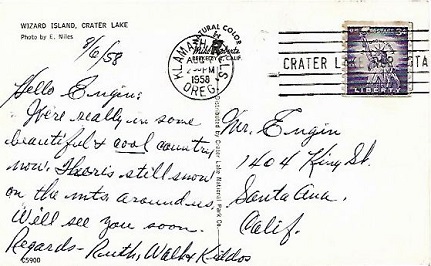 WIZARD ISLAND, CRATER LAKE
Photo by E. Niles
8/6/58
Hello Engins:
We're really in some
beautiful & cool country
now. There's still snow
on the mts around us.
We'll see you soon.
Regards - Ruth, Wally Kiddos
C5900
NATURAL COLOR
Mike Roberts
BERKELEY 2, CALIF.
Distributed by Crater Lake National Park Co.
KLAMATH
PM
1958
OREG.
CRATER LAKE
LIBERTY
3¢
Mr. Engin
1404 King St.
Santa Ana.
Calif.